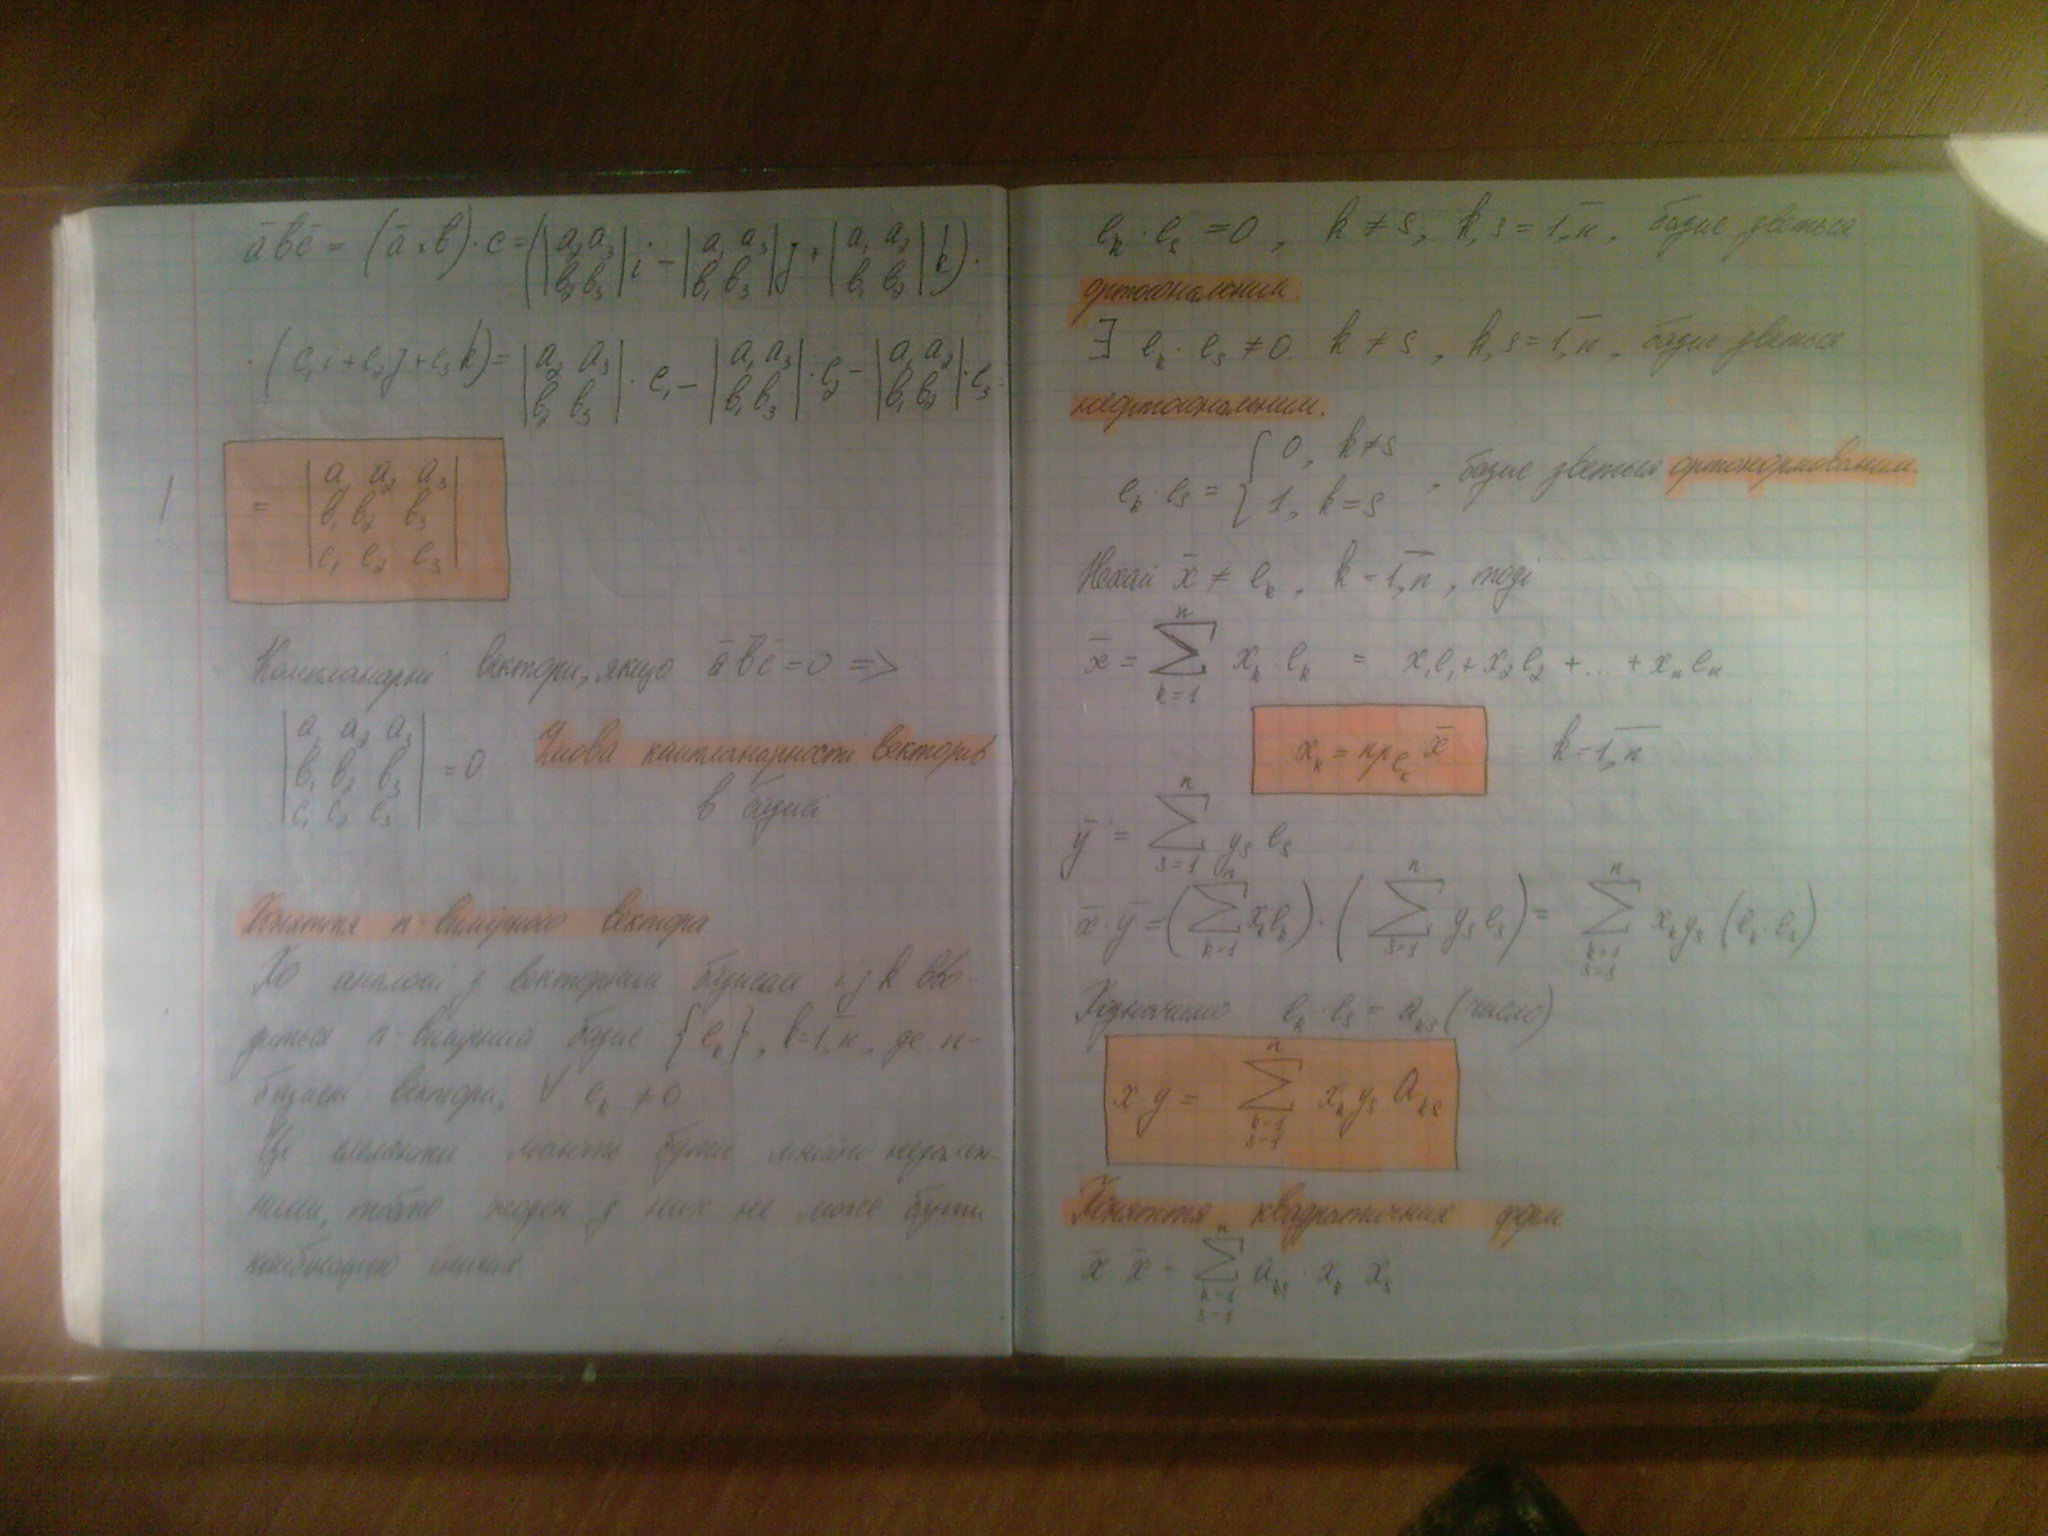 āb̄c̄ = (ā × b̄) · c = (|a₂ a₃; b₂ b₃| i − |a₁ a₃; b₁ b₃| j + |a₁ a₂; b₁ b₂| k) ·
· (c₁i + c₂j + c₃k) = |a₂ a₃; b₂ b₃| · c₁ − |a₁ a₃; b₁ b₃| · c₂ − |a₁ a₂; b₁ b₂| · c₃ =
= |a₁ a₂ a₃; b₁ b₂ b₃; c₁ c₂ c₃|
Компланарні вектори, якщо āb̄c̄ = 0 =>
|a₁ a₂ a₃; b₁ b₂ b₃; c₁ c₂ c₃| = 0 Умова компланарності векторів
в базисі.
Поняття n-вимірного вектора
По аналогі з векторним базисом i j k вво-
диться n-вимірний базис {eₖ}, k = 1,n̄, де n-
базисні вектори, ∀ eₖ ≠ 0
Ці елементи мають бути лінійно незалеж-
ними, тобто жоден з них не може бути
комбінацією інших.
eₖ · eₛ = 0, k ≠ s, k, s = 1,n̄, базис зветься
ортогональним.
∃ eₖ · eₛ ≠ 0 k ≠ s, k, s = 1,n̄, базис зветься
неортогональним.
eₖ · eₛ = { 0, k ≠ s; 1, k = s , базис зветься ортонормованим.
Нехай x̄ ≠ eₖ, k = 1,n̄, тоді
x̄ = ∑ₖ₌₁ⁿ xₖ · eₖ = x₁e₁ + x₂e₂ + ... + xₙeₙ
xₖ = пр_eₖ x̄ k = 1,n̄
ȳ = ∑ₛ₌₁ⁿ yₛ eₛ
x̄ · ȳ = (∑ₖ₌₁ⁿ xₖeₖ) · (∑ₛ₌₁ⁿ yₛeₛ) = ∑ⁿ (k=1, s=1) xₖyₛ (eₖ · eₛ)
Позначимо eₖ · eₛ = aₖₛ (число)
x y = ∑ⁿ (k=1, s=1) xₖyₛ aₖₛ
Поняття квадратичних форм
x̄ · x̄ = ∑ⁿ (k=1, s=1) aₖₛ · xₖ xₛ